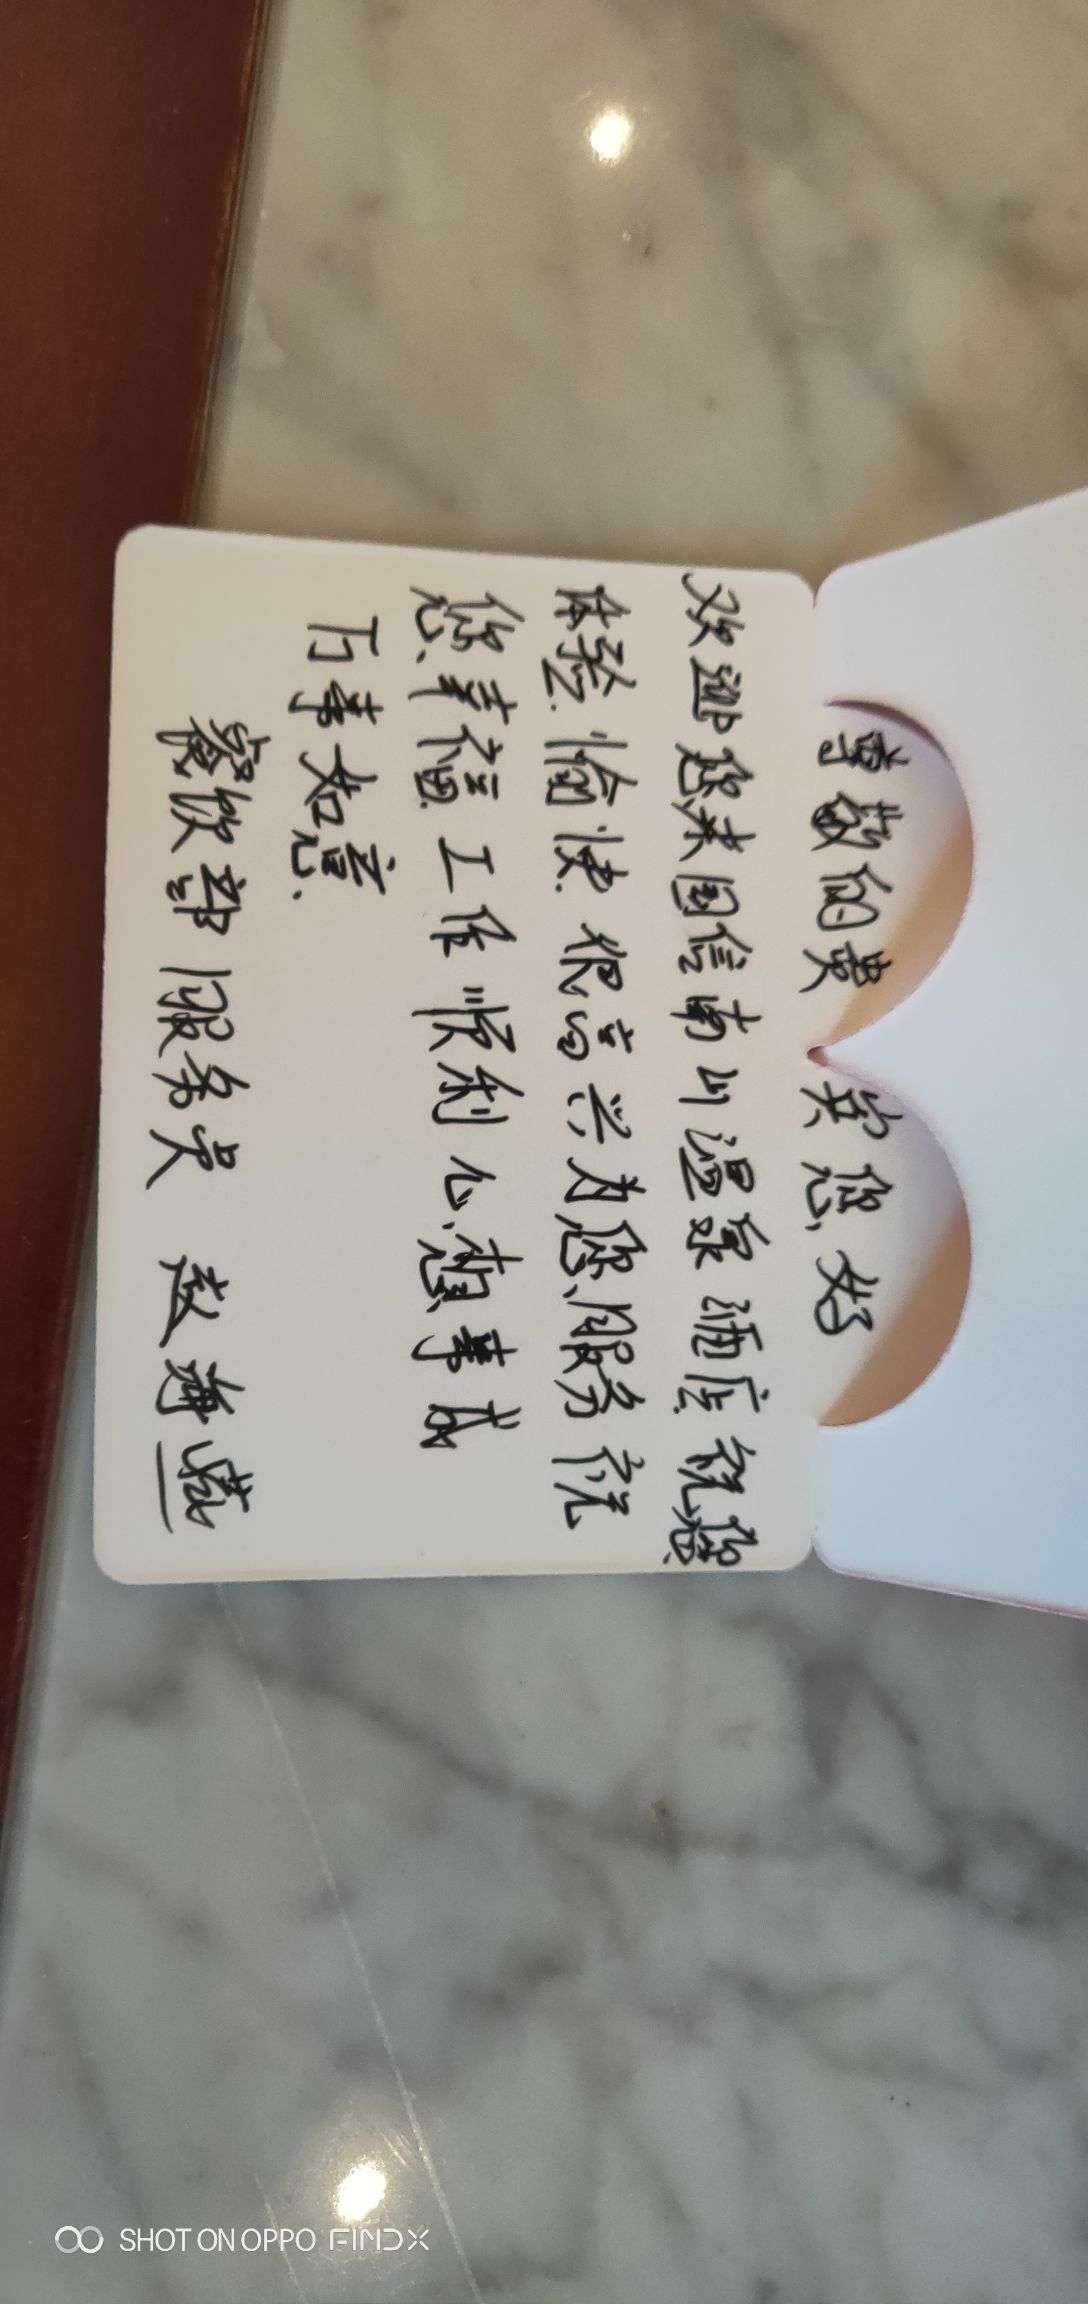 尊敬的贵宾您好
欢迎您来国信南山温泉酒店祝您
体验愉快很高兴为您服务祝
您幸福工作顺利心想事成
万事如意
餐饮部服务员 赵海燕
SHOT ON OPPO FIND X